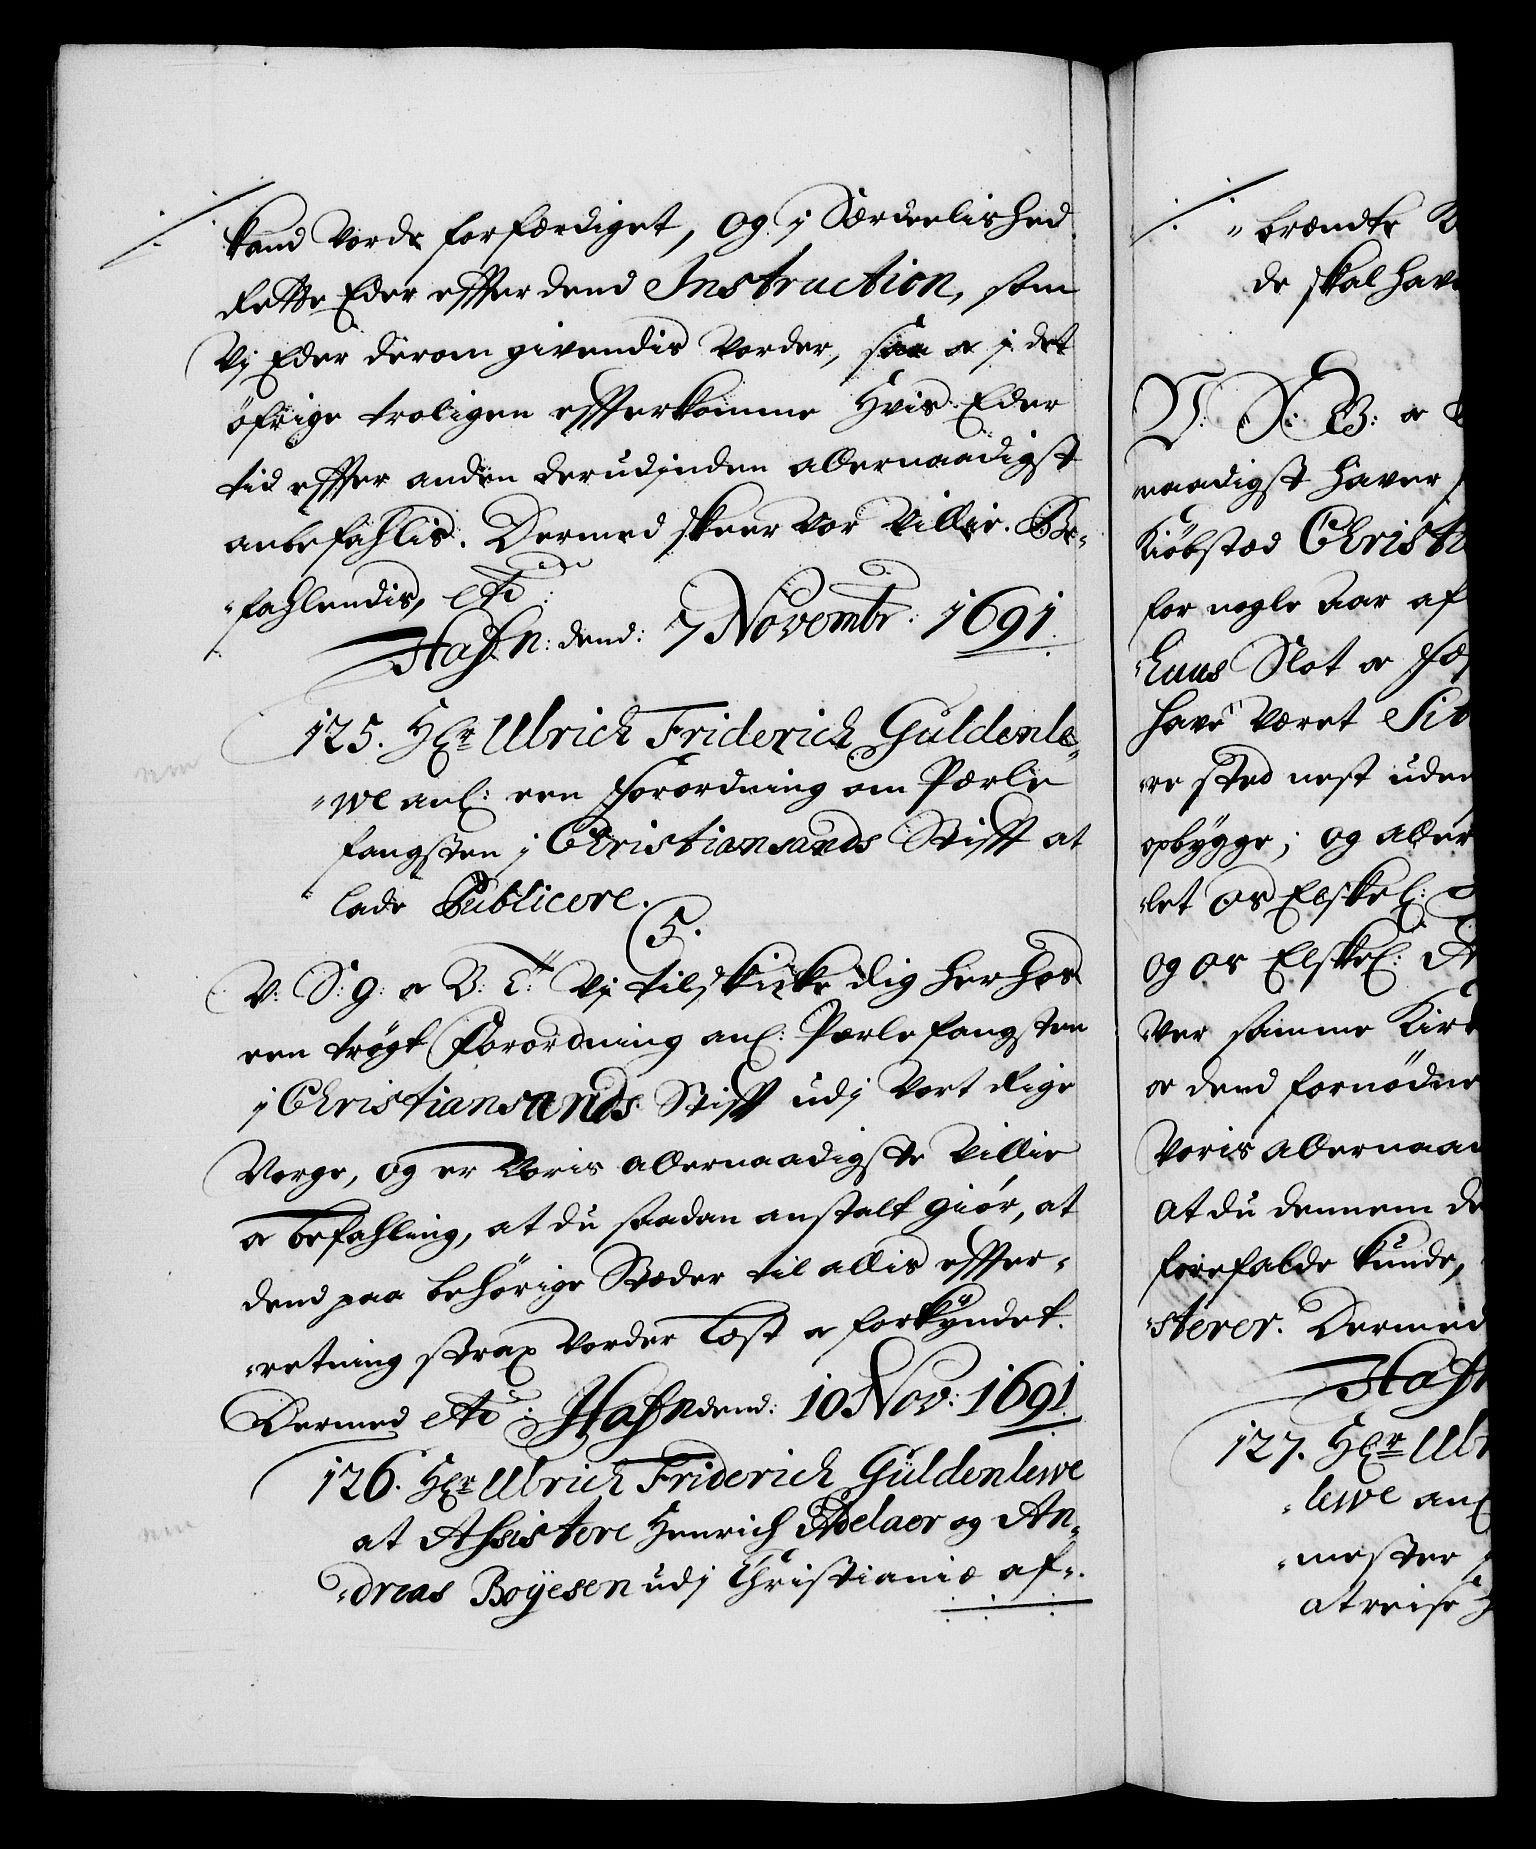 kand vorde forfærdiget, og j Særdeelished
Rette Eder effter dend Instruction, som
Vj Eder derom givendis vorder, saa oc j det
öfrige troligen effterkomme Hvis Eder
tid effter anden derudjnden allernaadigst
anbefahlis. Dermed skeer vor Villie. Be-
-fahlendis, etc:
Hafn: dend: 7 Novembr: 1691.
125. Hr Ulrich Friderich Guldenle-
-we anl: een Forordning om Pærle
fangsten j Christiansands Stifft at
lade Publicere.
5.
V: S: g: oc B: T: Vj tilskicke dig her hos
een trögt Forordning anl: Pærlefangsten
j Christiansands Stifft udj Vort Rige
Norge, og er Voris allernaadigste Villie
oc befahling, at du saadan anstalt giör, at
dend paa behörige Stæder til allis effter-
-retning strax vorder læst oc forkyndet.
Dermed etc: Hafn dend: 10 Nov: 1691
126. Hr Ulrich Friderich Guldenlewe
at Assistere Henrich Adelaer og An-
-dreas Boÿesen udj Christianiæ af-
brændte
de skal hav
V. S: B: oc
naadigst haver
Kiöbstæd Christi
for nogle Aar af
-huus Slot oc Fæ
have været
-re sted nest uden
opbygge; og aller
-let os Elskel:
og os Elskel: A
ver samme Kirk
oc dend fornödne
Voris allernaad
at du dennem de
forefalde kunde,
-sterer. Dermed
Hafn
127. Hr Ulr
-lewe anl
-mester
at reise